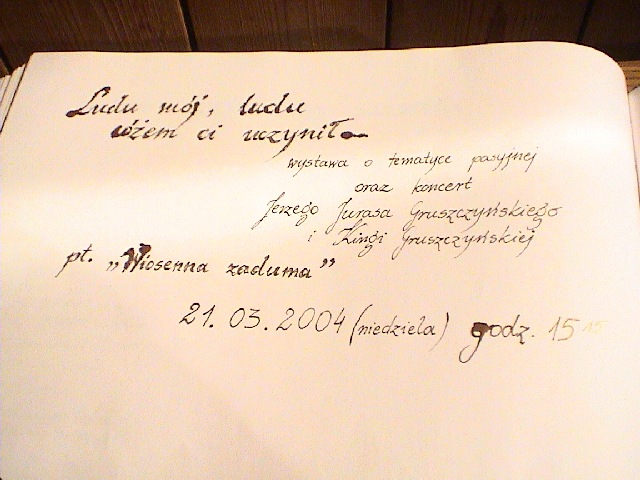 Ludu mój, ludu
cóżem ci uczynił
wystawa o tematyce pasyjnej
oraz koncert
Jerzego Jurasa Gruszczyńskiego
i Kingi Gruszczyńskiej
pt. „Wiosenna zaduma”
21. 03. 2004 (niedziela) godz. 15